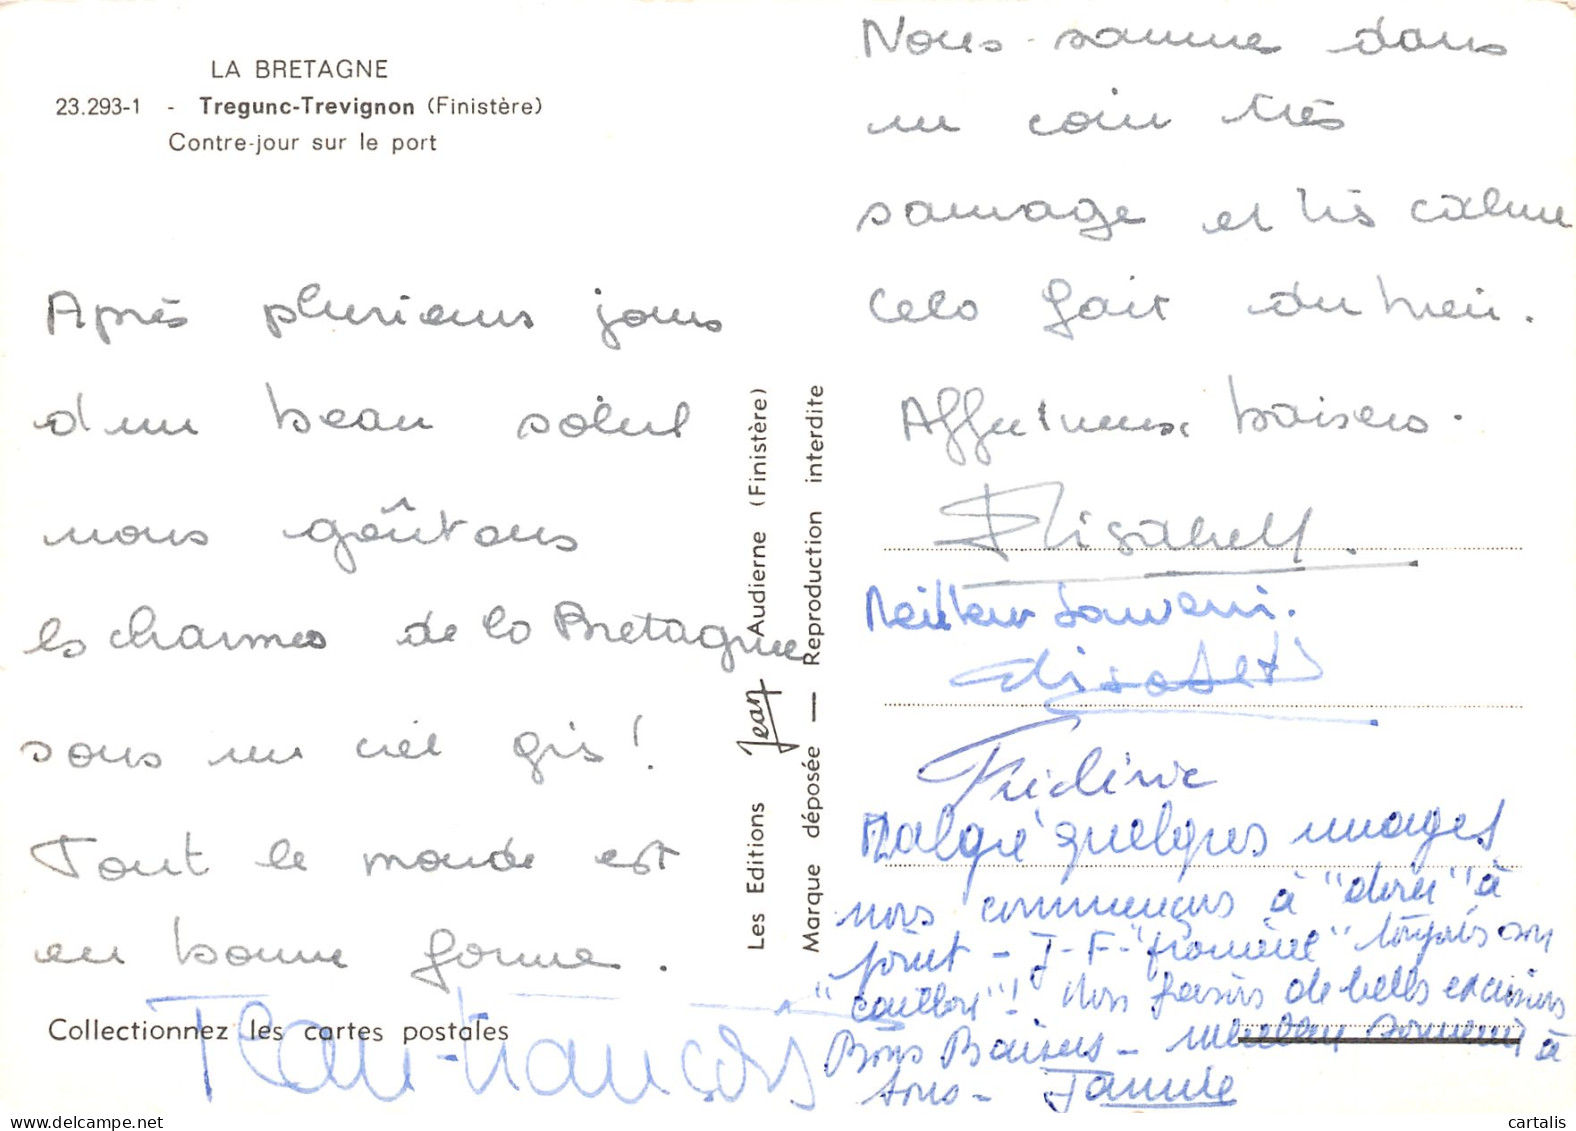 LA BRETAGNE
23.293-1 - Tregunc-Trevignon (Finistère)
Contre-jour sur le port
Après plusieurs jours
d'un beau soleil
nous goûtons
les charmes de la Bretagne
sous un ciel gris !
Tout le monde est
en bonne forme.
Collectionnez les cartes postales
Jean-François
Les Editions Jean Audierne (Finistère)
Marque déposée — Reproduction interdite
Nous sommes dans
un coin très
sauvage et très calme
Cela fait du bien.
Affectueux baisers.
Elisabeth.
Meilleur souvenir.
Elisabeth
Frédéric
Malgré quelques nuages
nous commençons à "dorer" à
point - J-F-" " toujours son
" "! Nous faisons de belles excursions
Bons Baisers - meilleur souvenir à
tous -